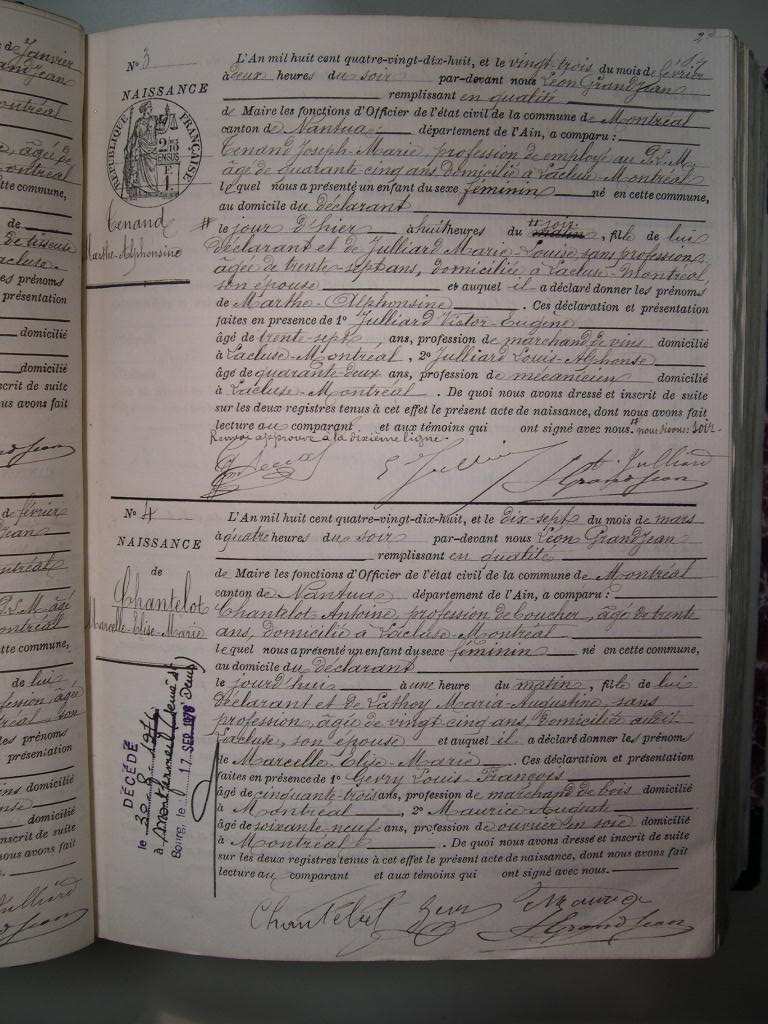 de Janvier
Montréal
âgé de
Montréal
tte commune,
de
de tisseuse
Lacluse
les prénoms
présentation
domicilié
domicilié
nscrit de suite
us avons fait
de février
Montréal
tte commune,
de lui
es prénoms
présentation
domicilié
domicilié
inscrit de suite
nous avons fait
2
No 3
NAISSANCE
RÉPUBLIQUE FRANÇAISE
Cenand
Marthe-Alphonsine
L'An mil huit cent quatre-vingt-dix-huit, et le vingt-trois du mois de février
à deux heures du soir par-devant nous Léon GrandJean
remplissant en qualité
de Maire les fonctions d'Officier de l'état civil de la commune de Montréal
canton de Nantua département de l'Ain, a comparu :
Cenand Joseph-Marie, profession de employé au P.L.M,
âgé de quarante cinq ans domicilié à Lacluse-Montréal
lequel nous a présenté un enfant du sexe féminin né en cette commune,
au domicile du déclarant
# le jour d'hier à huit heures du # soir matin, fille de lui
déclarant et de Julliard Marie-Louise sans profession,
âgée de trente-sept ans, domiciliée à Lacluse-Montréal,
son épouse et auquel il a déclaré donner les prénoms
de Marthe-Alphonsine. Ces déclaration et présentation
faites en présence de 1o Julliard Victor-Eugène
âgé de trente-sept, ans, profession de marchand de vins domicilié
à Lacluse-Montréal, 2o Julliard Louis-Alphonse
âgé de quarante-deux ans, profession de mécanicien domicilié
à Lacluse-Montréal. De quoi nous avons dressé et inscrit de suite
sur les deux registres tenus à cet effet le présent acte de naissance, dont nous avons fait
lecture au comparant et aux témoins qui ont signé avec nous. # nous disons: soir.
Renvoi approuvé à la dixième ligne.
E Julliard
L. Julliard
L GrandJean
No 4
NAISSANCE
de
Chantelot
Marcelle-Elise-Marie
L'An mil huit cent quatre-vingt-dix-huit, et le dix-sept du mois de mars
à quatre heures du soir par-devant nous Léon GrandJean
remplissant en qualité
de Maire les fonctions d'Officier de l'état civil de la commune de Montréal
canton de Nantua département de l'Ain, a comparu :
Chantelot Antoine, profession de boucher, âgé de trente
ans, domicilié à Lacluse-Montréal
lequel nous a présenté un enfant du sexe féminin né en cette commune,
au domicile du déclarant
le jourd'hui à une heure du matin, fille de lui
déclarant et de Lathoy Maria-Augustine, sans
profession, âgée de vingt cinq ans domiciliée audit
Lacluse, son épouse et auquel il a déclaré donner les prénoms
de Marcelle-Elise-Marie. Ces déclaration et présentation
faites en présence de 1o Gevry Louis-François
âgé de cinquante-trois ans, profession de marchand de bois domicilié
à Montréal, 2o Maurice Auguste
âgé de soixante neuf ans, profession de ouvrier en soie domicilié
à Montréal. De quoi nous avons dressé et inscrit de suite
sur les deux registres tenus à cet effet le présent acte de naissance, dont nous avons fait
lecture au comparant et aux témoins qui ont signé avec nous.
DÉCÉDÉ
le
à Montfermeil (Seine St Denis)
Bourg, le 17 SEP 1976
Chantelot
Maurice
L GrandJean